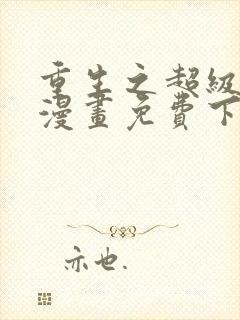 重生之超級
漫畫免費下
亦也.